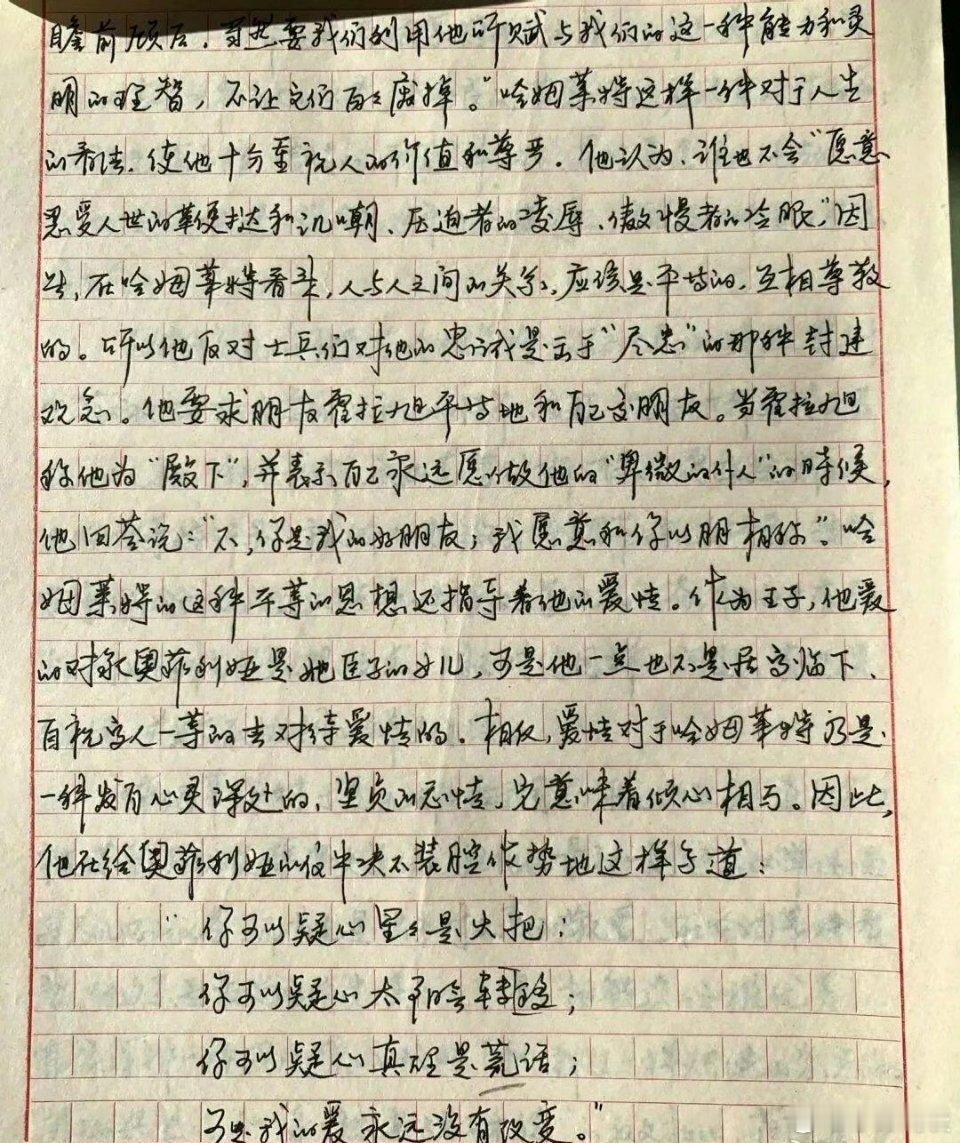 瞻前顾后，当然要我们利用他所赋与我们的这一种能力和灵
明的理智，不让它们白白废掉。"哈姆莱特这样一种对于人生
的看法，使他十分重视人的价值和尊严。他认为，谁也不会"愿意
忍受人世的鞭挞和讥嘲、压迫者的凌辱、傲慢者的冷眼"，因
此，在哈姆莱特看来，人与人之间的关系，应该是平等的，互相尊敬
的。所以他反对士兵们对他的忠诚是出于"尽忠"的那种封建
观念。他要求朋友霍拉旭平等地和自己交朋友。当霍拉旭
称他为"殿下"，并表示自己永远愿做他的"卑微的仆人"的时候，
他回答说："不，你是我的好朋友；我愿意和你以朋相称"。哈
姆莱特的这种平等的思想还指导着他的爱情。作为王子，他爱
的对象奥菲利娅是她臣子的女儿，可是他一点也不是居高临下、
自视高人一等的去对待爱情的。相反，爱情对于哈姆莱特乃是
一种发自心灵深处的，坚贞的感情，它意味着倾心相与。因此，
他在给奥菲利娅的信中决不装腔作势地这样写道：
"你可以疑心星星是火把；
你可以疑心太阳会转移；
你可以疑心真理是荒话；
可是我的爱永远没有改变。"